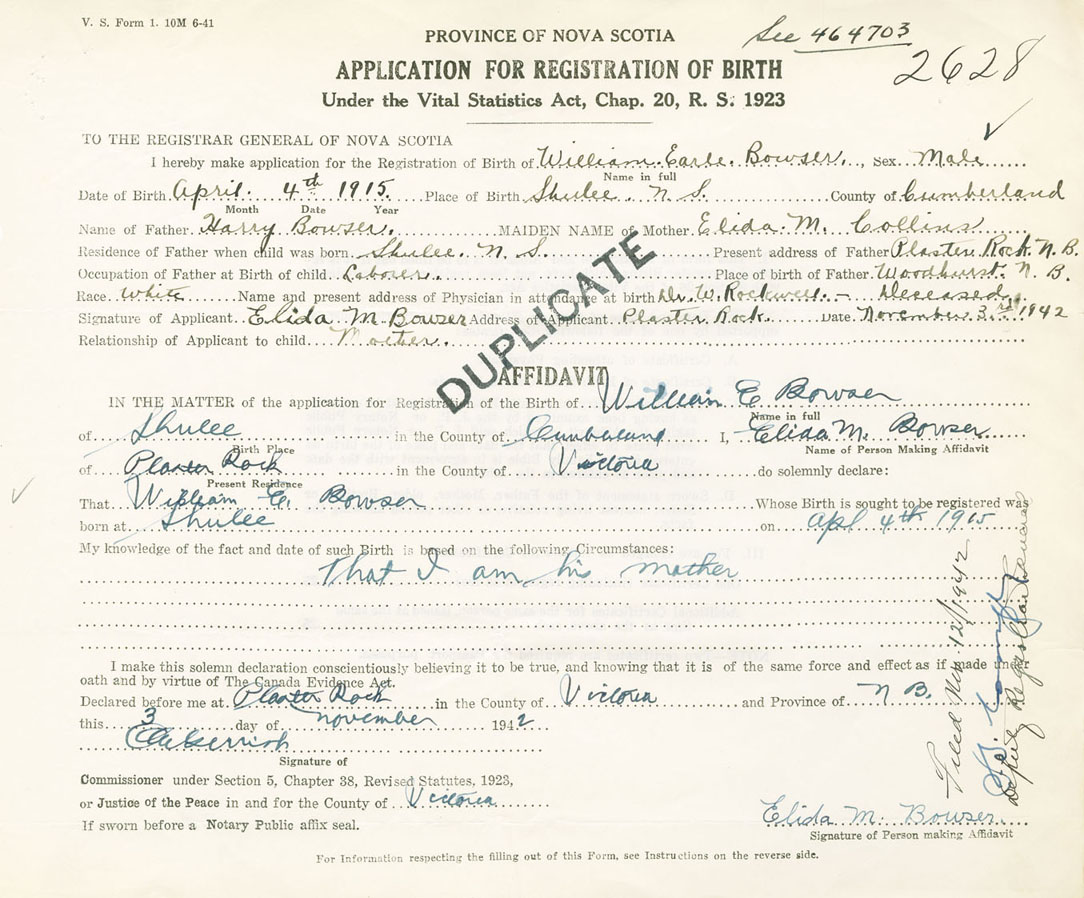 V. S. Form 1. 10M 6-41
See 464703
2628
PROVINCE OF NOVA SCOTIA
APPLICATION FOR REGISTRATION OF BIRTH
Under the Vital Statistics Act, Chap. 20, R. S. 1923
TO THE REGISTRAR GENERAL OF NOVA SCOTIA
I hereby make application for the Registration of Birth of William Earle Bowser, Sex Male
Name in full
Date of Birth April 4th 1915 Place of Birth Shulee N S. County of Cumberland
Month Date Year
Name of Father Harry Bowser. MAIDEN NAME of Mother Elida M. Collins
Residence of Father when child was born Shulee. N S. Present address of Father Plaster Rock N B.
Occupation of Father at Birth of child Laborer. Place of birth of Father Woodhurst. N B.
Race White Name and present address of Physician in attendance at birth Dr. W. Rockwell. - Deceased
Signature of Applicant Elida M Bowser Address of Applicant Plaster Rock. Date November 3rd 1942
Relationship of Applicant to child Mother.
DUPLICATE
AFFIDAVIT
IN THE MATTER of the application for Registration of the Birth of William E Bowser
Name in full
of Shulee in the County of Cumberland I, Elida M. Bowser
Birth Place Name of Person Making Affidavit
of Plaster Rock in the County of Victoria do solemnly declare:
Present Residence
That William E. Bowser Whose Birth is sought to be registered was
born at Shulee on Apl 4th 1915
My knowledge of the fact and date of such Birth is based on the following Circumstances:
That I am his mother
I make this solemn declaration conscientiously believing it to be true, and knowing that it is of the same force and effect as if made under
oath and by virtue of The Canada Evidence Act.
Declared before me at Plaster Rock in the County of Victoria and Province of N B.
this 3 day of November 1942
Signature of
Commissioner under Section 5, Chapter 38, Revised Statutes, 1923,
or Justice of the Peace in and for the County of Victoria
If sworn before a Notary Public affix seal.
Elida M. Bowser
Signature of Person making Affidavit
For Information respecting the filling out of this Form, see Instructions on the reverse side.
Filed Nov. 12/1942
Deputy Registrar General